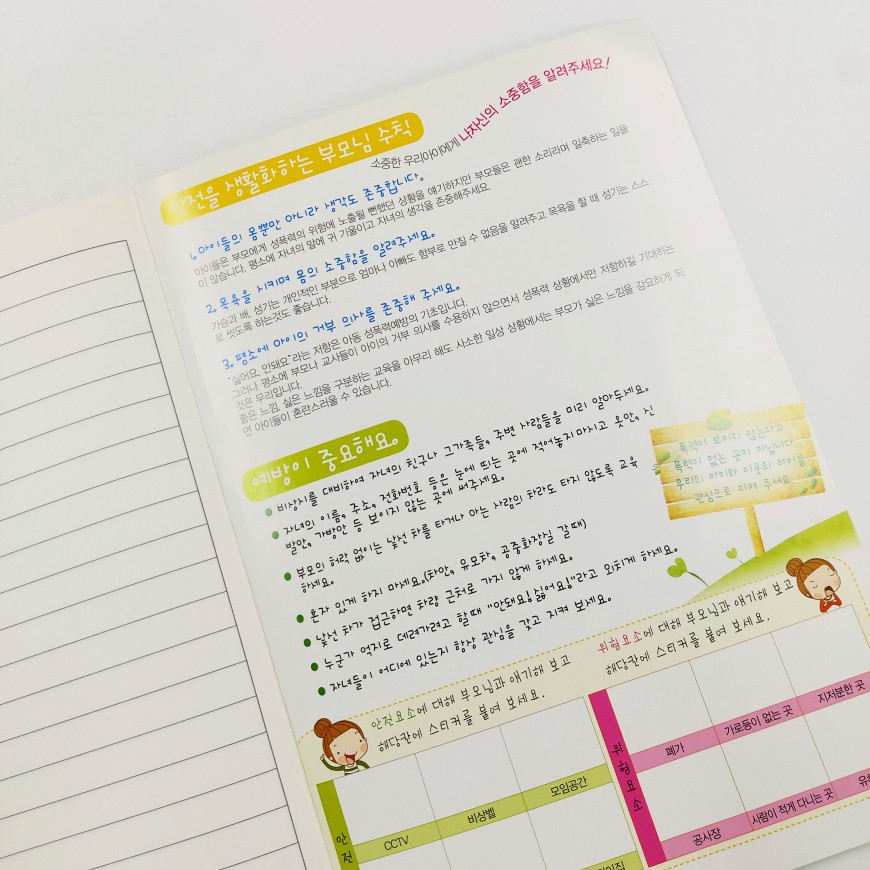 안전을 생활화하는 부모님 수칙
소중한 우리아이에게 나자신의 소중함을 알려주세요!
1. 아이들의 몸뿐만 아니라 생각도 존중합니다.
아이들은 부모에게 성폭력의 위험에 노출될 뻔했던 상황을 얘기하지만 부모들은 괜한 소리라며 일축하는 일들
이 많습니다. 평소에 자녀의 말에 귀 기울이고 자녀의 생각을 존중해주세요.
2. 목욕을 시키며 몸의 소중함을 알려주세요.
가슴과 배, 성기는 개인적인 부분으로 엄마나 아빠도 함부로 만질 수 없음을 알려주고 목욕을 할 때 성기는 스스
로 씻도록 하는것도 좋습니다.
3. 평소에 아이의 거부 의사를 존중해 주세요.
"싫어요, 안돼요"라는 저항은 아동 성폭력예방의 기초입니다.
그러나 평소에 부모나 교사들이 아이의 거부 의사를 수용하지 않으면서 성폭력 상황에서만 저항하길 기대하는
것은 무리입니다.
좋은 느낌, 싫은 느낌을 구분하는 교육을 아무리 해도 사소한 일상 상황에서는 부모가 싫은 느낌을 강요하게 되
면 아이들이 혼란스러울 수 있습니다.
예방이 중요해요.
● 비상시를 대비하여 자녀의 친구나 그가족들, 주변 사람들을 미리 알아두세요.
● 자녀의 이름, 주소, 전화번호 등은 눈에 띄는 곳에 적어놓지마시고 옷안, 신
발안, 가방안 등 보이지 않는 곳에 써주세요.
● 부모의 허락 없이는 낯선 차를 타거나 아는 사람의 차라도 타지 않도록 교육
하세요.
● 혼자 있게 하지 마세요.(차안, 유모차, 공중화장실 갈때)
● 낯선 차가 접근하면 차량 근처로 가지 않게 하세요.
● 누군가 억지로 데려가려고 할때 "안돼요! 싫어요!"라고 외치게 하세요.
● 자녀들이 어디에 있는지 항상 관심을 갖고 지켜 보세요.
폭력이 보이지 않는다고
폭력이 없는 곳이 아닙니다
우리의 아이와 이웃의 아이를
관심으로 지켜 주세요
안전요소에 대해 부모님과 얘기해 보고
해당칸에 스티커를 붙여 보세요.
안전
CCTV
비상벨
모임공간
위험요소에 대해 부모님과 얘기해 보고
해당칸에 스티커를 붙여 보세요.
위험요소
폐가
가로등이 없는 곳
지저분한 곳
공사장
사람이 적게 다니는 곳